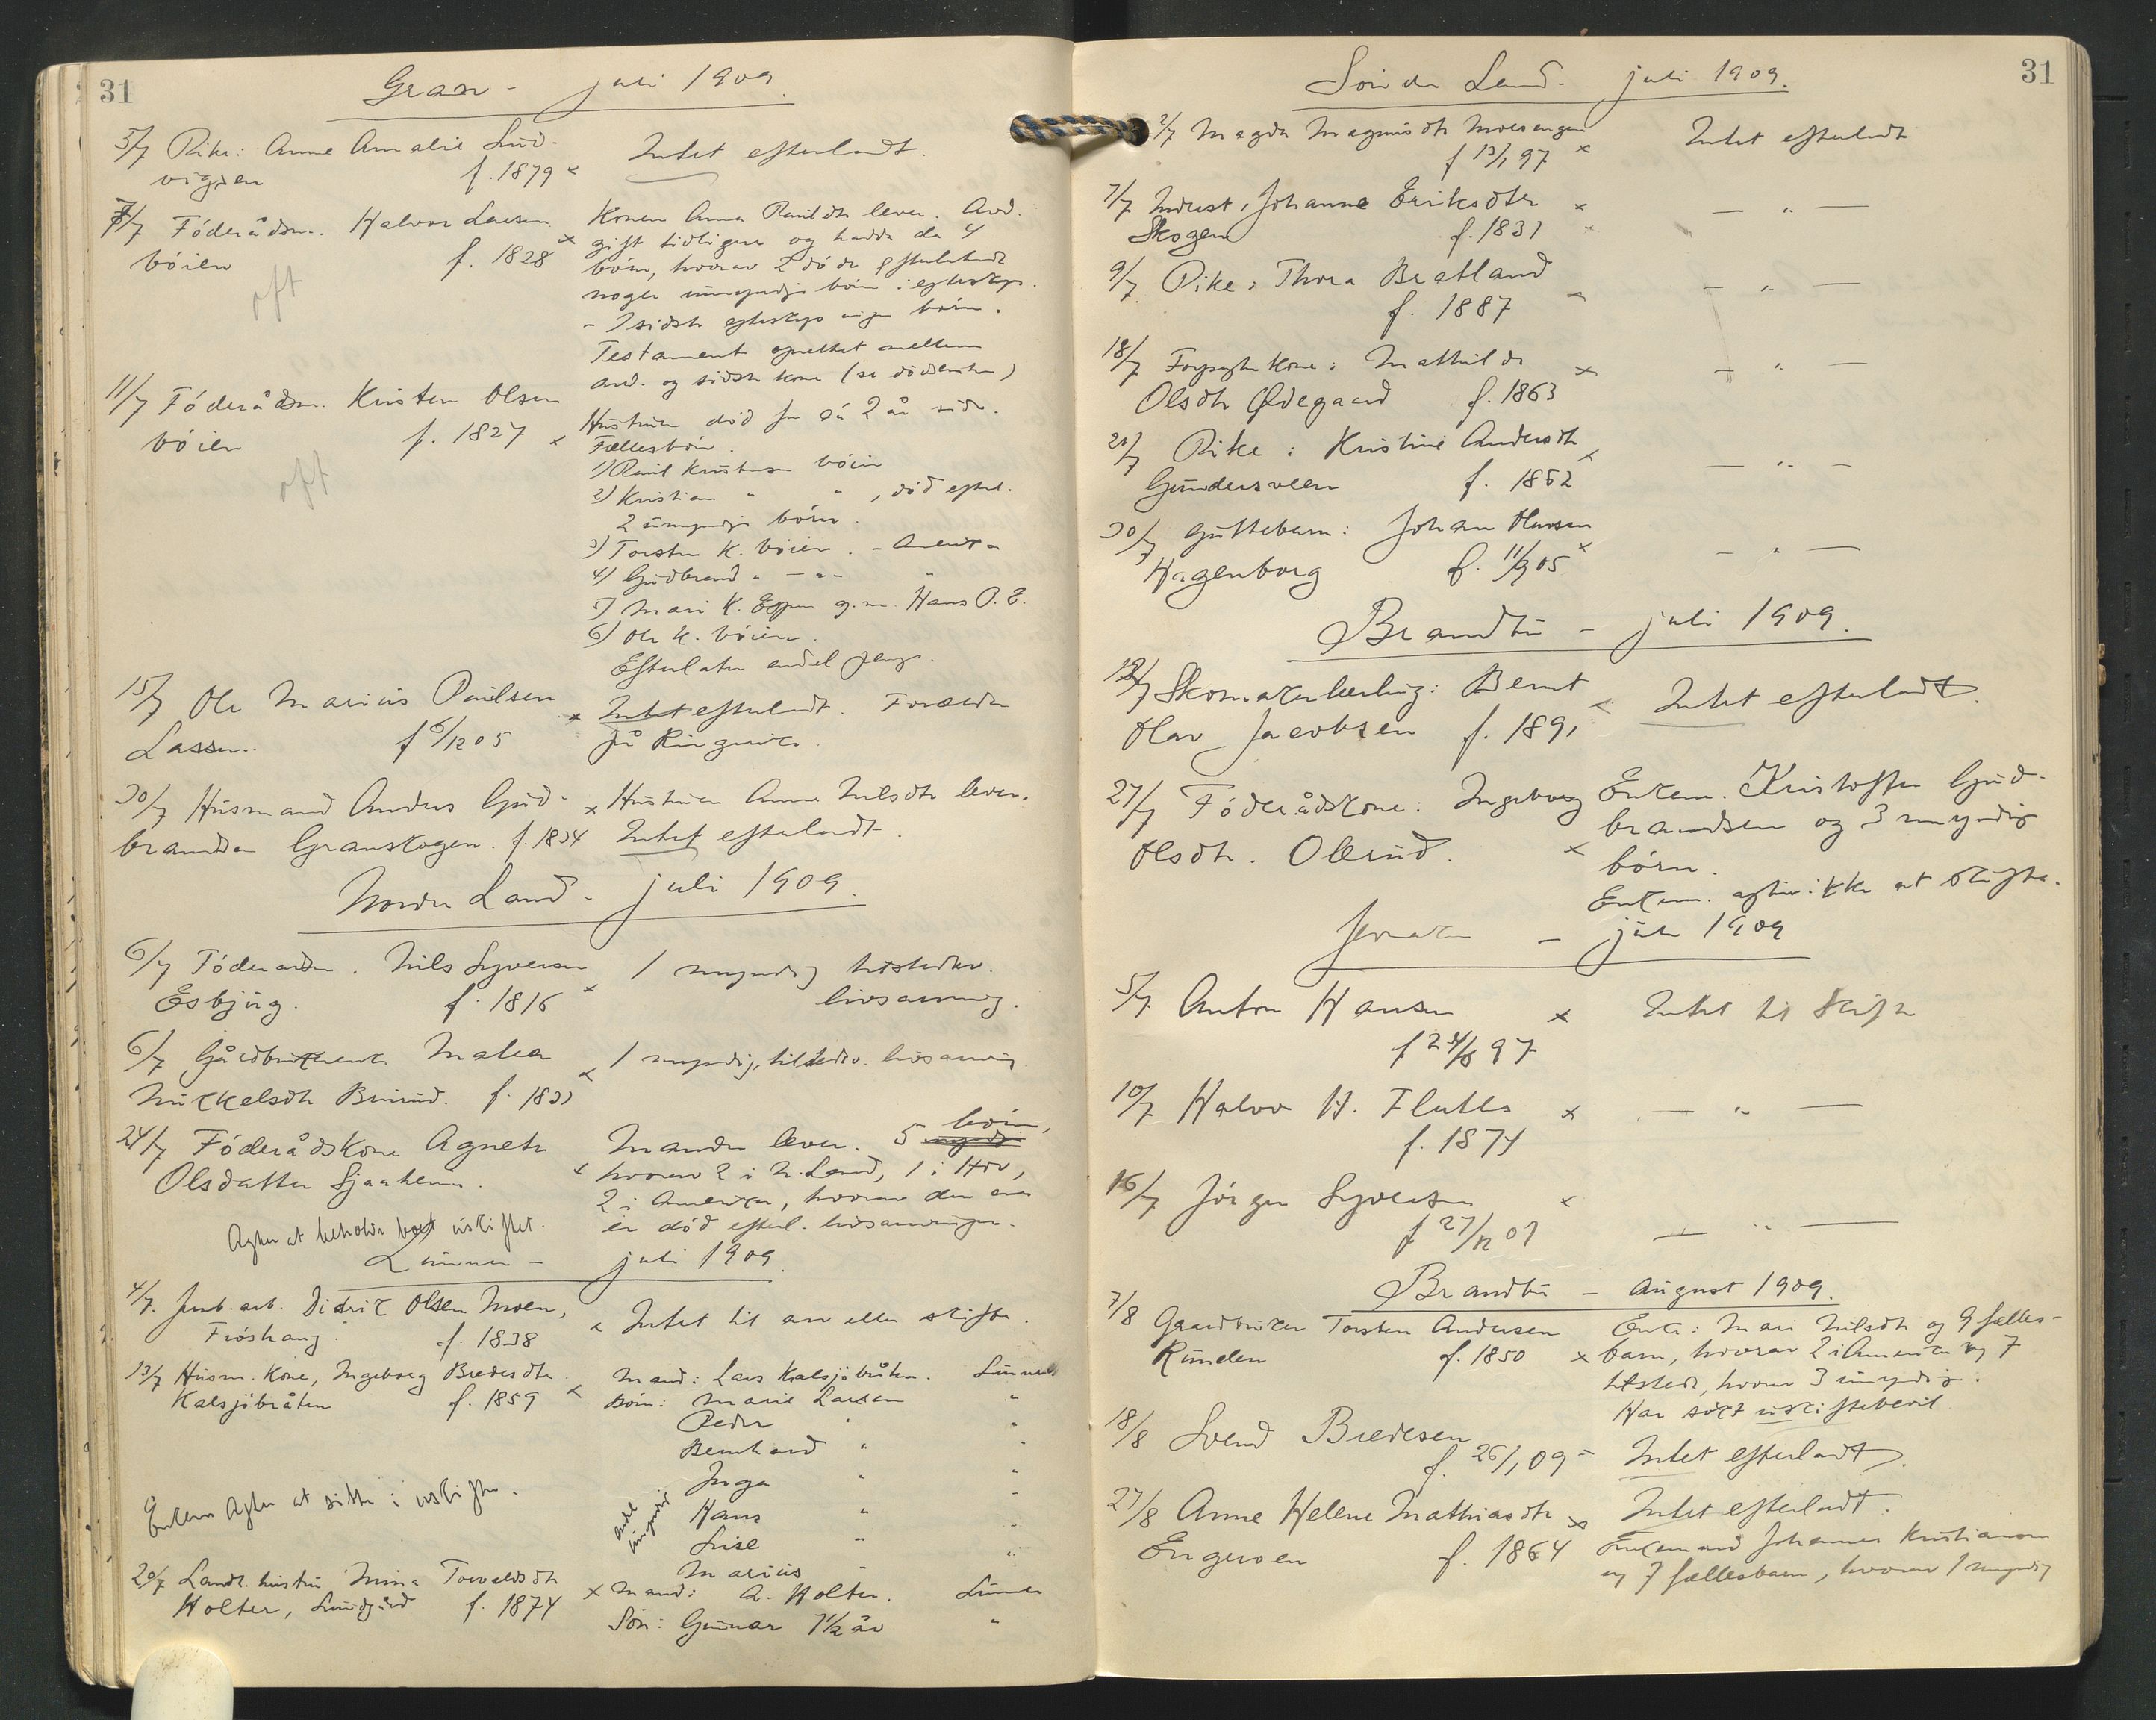 31
Gran - juli 1909.
5/7 Pike: Anne Amalie Lud-
vigsen f. 1879 x
Intet efterladt.
7/7 Föderådsm. Halvor Larsen
böien f. 1828 x
oft
Konen Anna Paulsdtr lever. Avd.
gift tidligere og hadde da 4
börn, hvorav 2 döde efterladt
nogen umyndige börn i egteskap.
- I sidste egteskap ingen börn.
Testament oprettet mellem
avd. og sidste kone (se dödsanm)
11/7 Föderådsm. Kristen Olsen
böien f. 1827 x
oft
Hustruen död for ca 2 år siden.
Fællesbörn.
1) Paul Kristensen böien
2) Kristian " " , död efterl.
2 umyndige börn.
3) Torsten K. böien. - Amerika
4) Gudbrand " - " - "
5) Mari K. Egge g.m. Hans O. E.
6) Ole K. böien.
Efterlater endel penge.
15/7 Ole Marius Paulsen
Lassen. f 6/12 05
x Intet efterladt. Forældre
på Ringerike.
30/7 Husmand Anders Gud-
brandsen Granskogen. f. 1834
x Hustruen Anne Nilsdtr lever.
Intet efterladt.
Nordre Land - juli 1909.
6/7 Föderaadsm. Nils Syversen
Esbjüg. f. 1816 x
1 myndig tilstedev.
livsarving.
6/7 Gårdbrukerenke Mathea
Mikkelsdtr f. 1833 x
1 myndig, tilstedev. livsarving
24/7 Föderådskone Agnete
Olsdatter Sjaaheim.
Agter at beholde boet uskiftet.
Manden lever. 5 börn,
x hvorav 2 i N. Land, 1 i Hov,
2 i Amerika, hvorav den ene
er död efterl. livsarvinger.
Lunner - juli 1909.
4/7. Jernb. arb. Didrik Olsen Moen,
Fröshaug. f. 1838
x Intet til arv eller skifte.
13/7 Husm. kone, Ingeborg Bredesdtr.
Kalsjöbråten f. 1859 x
Enkem agter at sitte i uskifte.
Mand: Lars Kalsjöbråten. Lunner
Börn: Marie Larsen "
Peder " "
Bernhard " "
Inga " "
Hans " "
Lise " "
Marius " "
umyndig
20/7 Landh. hustru Mina Torvaldsdtr
Holter, Lundgård f. 1874
x Mand: A. Holter. Lunner
Sön: Gunnar 7 1/2 år "
31
Söndre Land - juli 1909.
2/7 Magda Magnusdtr Moesengen
f 13/1 97 x
Intet efterladt
7/7 Inderst, Johanne Eriksdtr
Skogen f. 1831 x
— " —
9/7 Pike: Thora Bratland
f. 1887
— " —
18/7 Forpagterkone: Mathilde
Olsdtr Ødegaard f. 1863 x
— " —
21/7 Pike: Kristine Andersdtr
Gundersveen f. 1852 x
— " —
30/7 Guttebarn: Johan Hansen
Hagenborg f. 11/9 05 x
— " —
Brandbu - juli 1909.
12/7 Skomakerlærling: Bernt
Olav Jacobsen f. 1891 x
Intet efterladt.
27/7 Föderådskone: Ingeborg
Olsdtr. Ollerud. x
Enkem. Kristoffer Gud-
brandsen og 3 myndig
börn.
Enkem. agter ikke at skifte.
Jevnaker - juli 1909
5/7 Anton Hansen x
f 24/6 97
Intet til skifte
10/7 Halvor H. Flutla x
f. 1874
— " —
16/7 Jörgen Syversen x
f 27/12 07
— " —
Brandbu - August 1909.
7/8 Gaardbruker Torsten Andersen
Runden f. 1850 x
Enke: Mari Nilsdtr og 9 fælles-
barn, hvorav 2 i Amerika og 7
tilstede, hvorav 3 umyndig.
Har sökt uskiftebevil.
18/8 Svend Bredesen
f. 26/1 09 -
Intet efterladt.
27/8 Anne Helene Mathiasdtr x
Engeroen f. 1864
Intet efterladt.
Enkemand Johannes Kristiansen
og 7 fællesbarn, hvorav 1 myndig